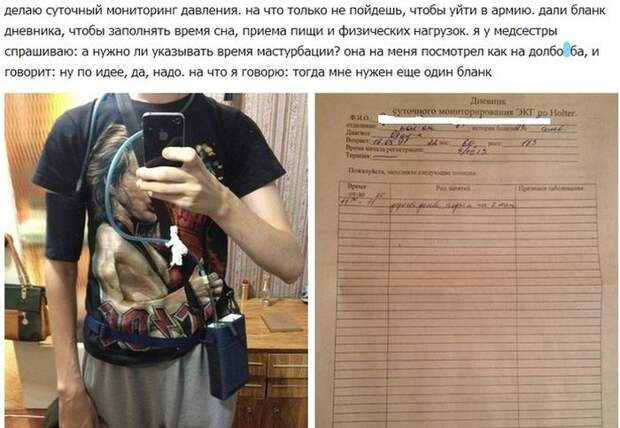 делаю суточный мониторинг давления. на что только не пойдешь, чтобы уйти в армию. дали бланк
дневника, чтобы заполнять время сна, приема пищи и физических нагрузок. я у медсестры
спрашиваю: а нужно ли указывать время мастурбации? она на меня посмотрел как на долбо ба, и
говорит: ну по идее, да, надо. на что я говорю: тогда мне нужен еще один бланк
Дневник
суточного мониторирования ЭКГ по Holter.
Ф.И.О.
отделение
история болезни №
Диагноз
Возраст: вес: рост:
Время начала регистрации:
Терапия:
Пожалуйста, заполните следующие позиции
Время Род занятий Признаки заболевания